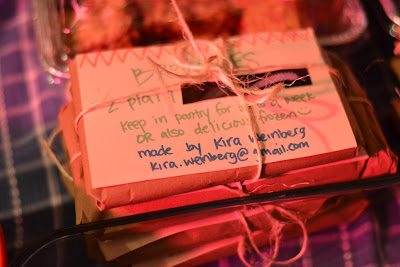 2 plain
keep in pantry for a week
or also delicious frozen
made by Kira Weinberg
kira.weinberg@gmail.com